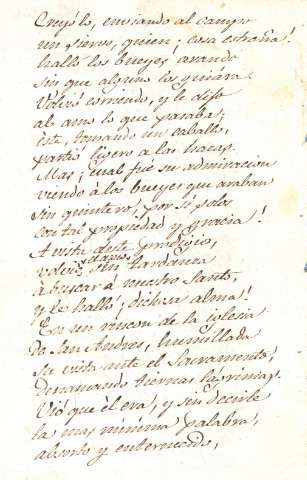 Creyólo, enviando al campo
un siervo, quien; cosa estraña!
halló los bueyes arando
sin que alguno los guiára.
Volvió corriendo, y le dijo
al amo lo que pasaba;
éste, tomando un caballo,
partió ligero a las hazas.
Mas; cual fué su admiracion
viendo à los bueyes que araban
sin quintero, por sí solos
con tal propiedad y gracia!
A vista deste prodigio,
volvió sin tardanza
à buscar à nuestro Santo,
y le halló; dichosa alma!
En un rincon de la iglesia
De San Andres, humillada
su vista ante el Sacramento,
Derramando tiernas lágrimas.
Vió que èl era, y sin decirle
la mas minima palabra,
absorto y enternecido,